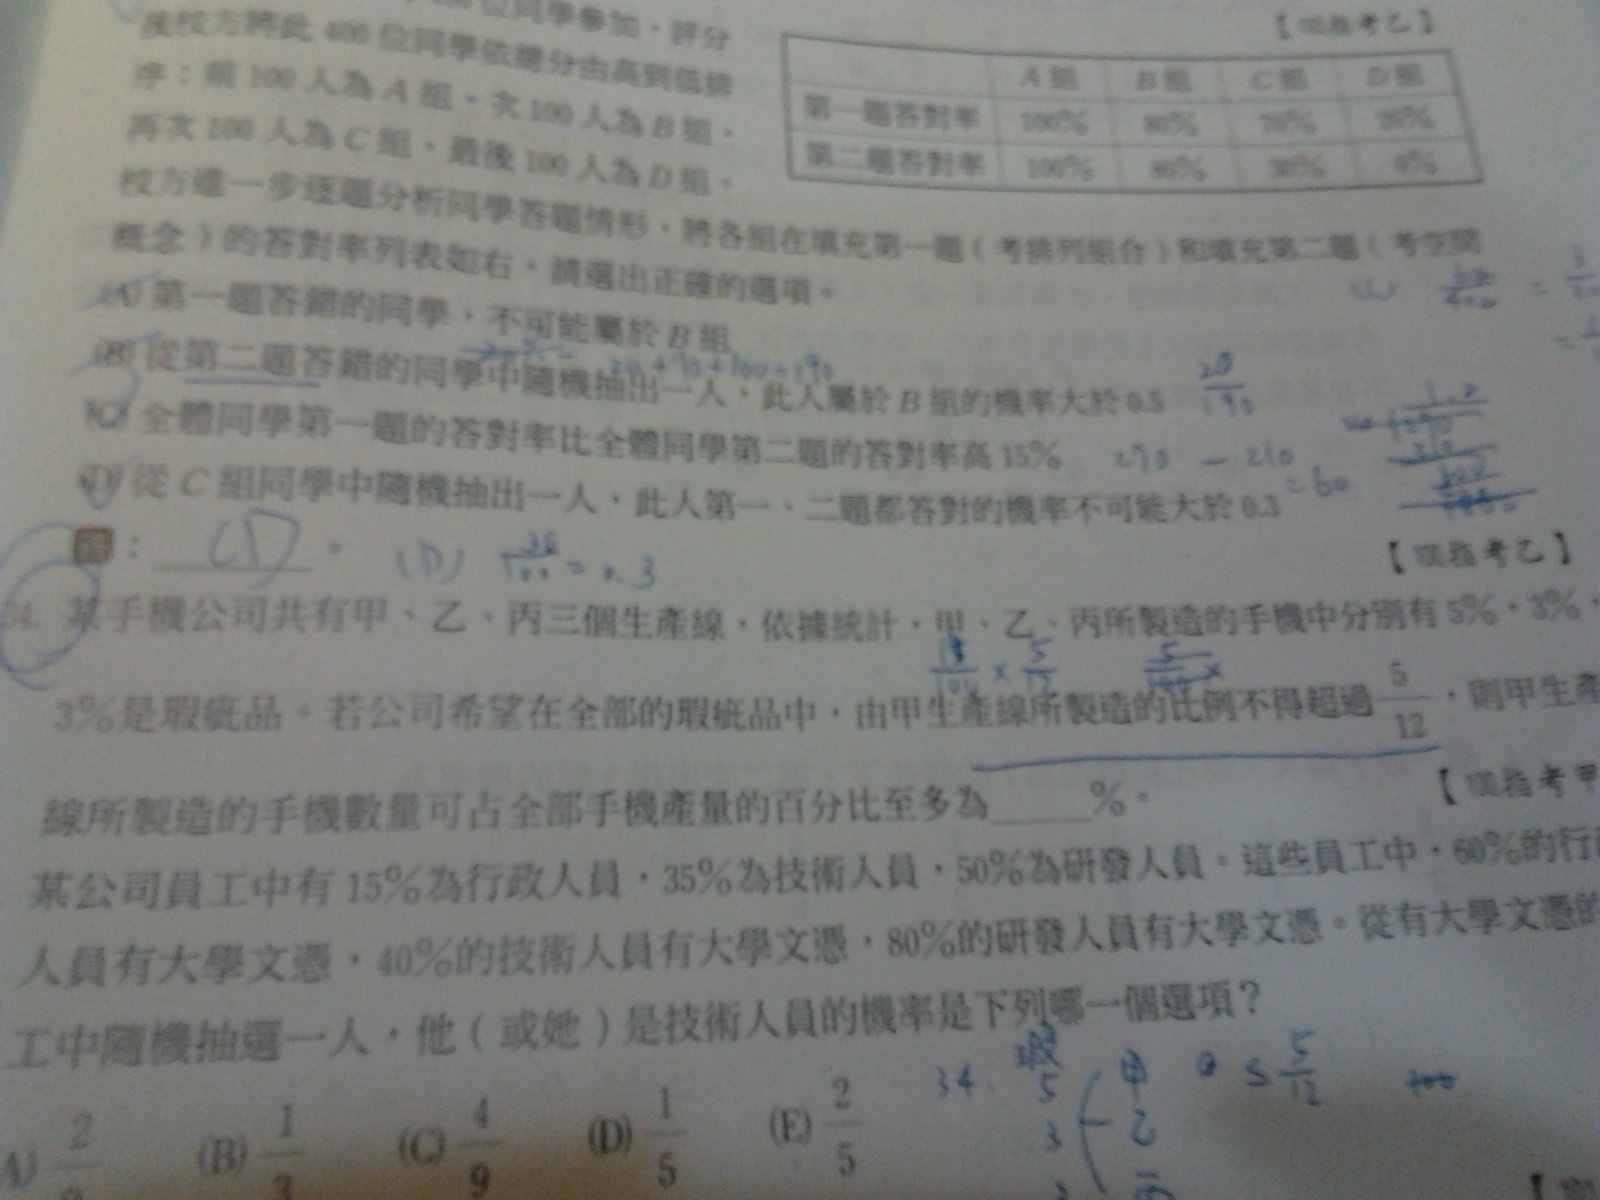 位同學參加，評分
後校方將此 400 位同學依總分由高到低排
序：前 100 人為 A 組，次 100 人為 B 組，
再次 100 人為 C 組、最後 100 人為 D 組。
校方進一步逐題分析同學答題情形，將各組在填充第一題（考排列組合）和填充第二題（考空間
概念）的答對率列表如右，請選出正確的選項。
指考乙】
A 組 B 組 C 組 D 組
第一題答對率 100% 80% 70% 20%
第二題答對率 100% 80% 30% 0%
(A) 第一題答錯的同學，不可能屬於 B 組
20+70+100=190
(B) 從第二題答錯的同學中隨機抽出一人，此人屬於 B 組的機率大於 0.5
20/190
(C) 全體同學第一題的答對率比全體同學第二題的答對率高 15%
270 - 210 = 60
(D) 從 C 組同學中隨機抽出一人，此人第一、二題都答對的機率不可能大於 0.3
答：(D)。
(D) 30/100 = 0.3
指考乙】
34. 某手機公司共有甲、乙、丙三個生產線，依據統計，甲、乙、丙所製造的手機中分別有 5%，3%，
3%是瑕疵品。若公司希望在全部的瑕疵品中，由甲生產線所製造的比例不得超過 5/12，則甲生產
線所製造的手機數量可占全部手機產量的百分比至多為____%。
指考甲
某公司員工中有 15%為行政人員，35%為技術人員，50%為研發人員。這些員工中，60%的行
人員有大學文憑，40%的技術人員有大學文憑，80%的研發人員有大學文憑。從有大學文憑的
工中隨機抽選一人，他（或她）是技術人員的機率是下列哪一個選項？
(B) 1/3 (C) 4/9 (D) 1/5 (E) 2/5
34. 瑕
5 甲 ≤ 5/12
3 乙
丙